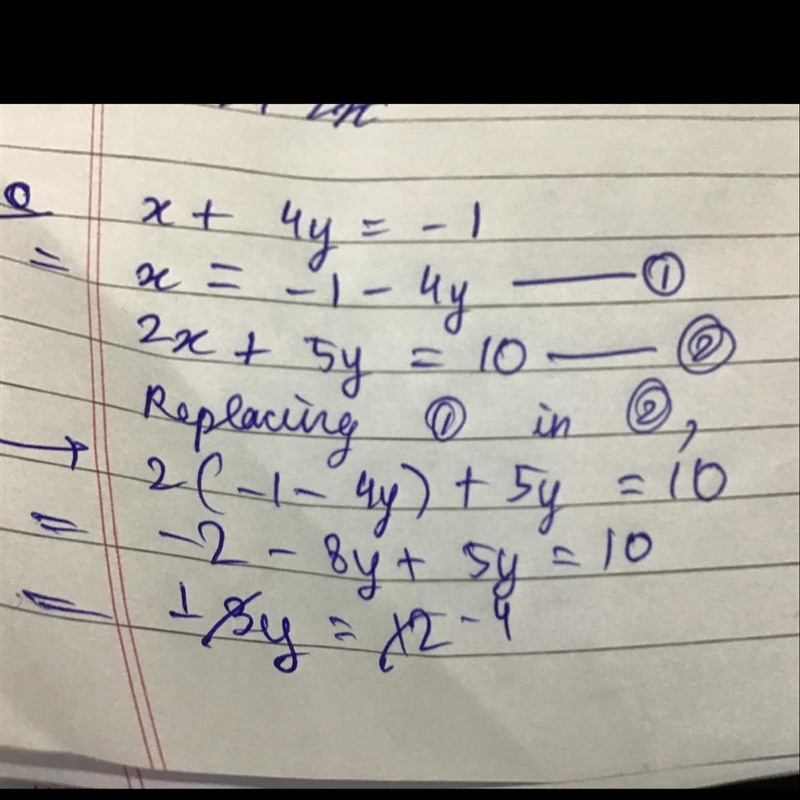 Q x + 4y = -1
= x = -1 - 4y —— ①
2x + 5y = 10 —— ②
Replacing ① in ②,
→ 2(-1 - 4y) + 5y = 10
= -2 - 8y + 5y = 10
= 3y = 12 - 4